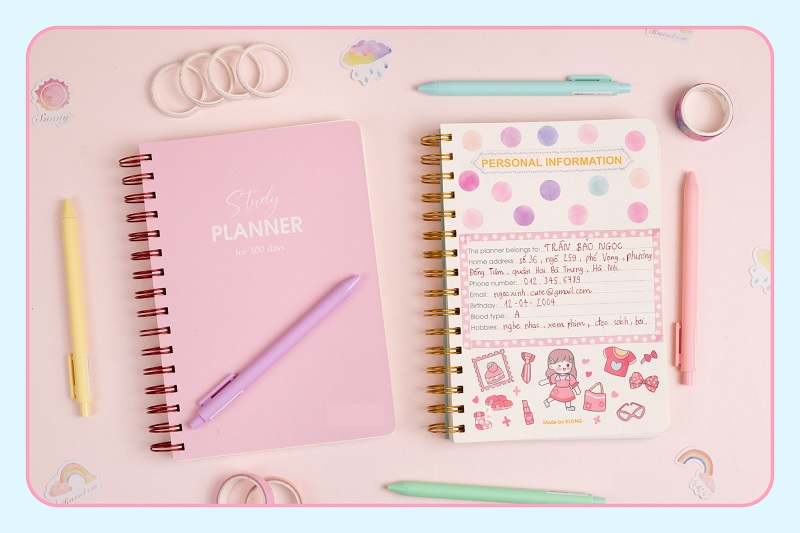 Sunny
Study
PLANNER
for 100 days
PERSONAL INFORMATION
This planner belongs to: TRẦN BẢO NGỌC
Home address: số 36, ngõ 259, phố Vọng, phường
Đồng Tâm, quận Hai Bà Trưng, Hà Nội.
Phone number: 012.345.6789
Email: ngocxinh.cute@gmail.com
Birthday: 12-04-2004
Blood type: A
Hobbies: nghe nhạc, xem phim, đọc sách, bơi.
Made by KLONG
Rainbow